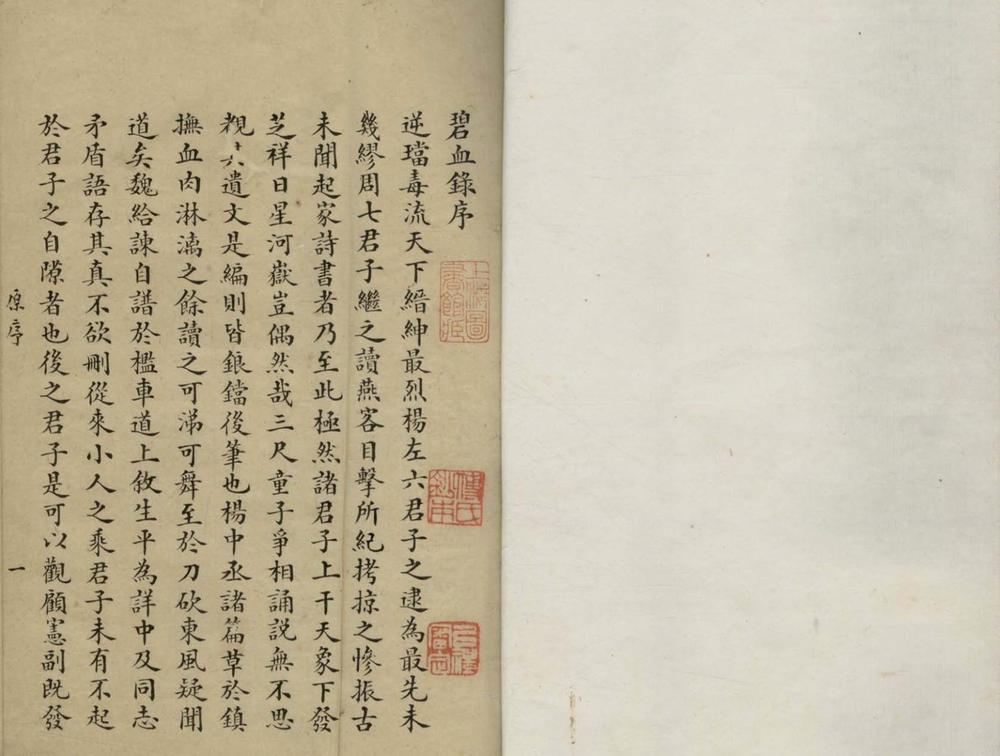 碧血錄序
逆璫毒流天下縉紳最烈楊左六君子之逮為最先未
幾繆周七君子繼之讀燕客目擊所紀拷掠之慘振古
未聞起家詩書者乃至此極然諸君子上干天象下發
芝祥日星河嶽豈偶然哉三尺童子爭相誦説無不思
覩十六遺文是編則皆鋃鐺後筆也楊中丞諸篇草於鎮
撫血肉淋漓之餘讀之可涕可舞至於刀砍東風疑聞
道矣魏給諫自譜於檻車道上敘生平為詳中及同志
矛盾語存其真不欲刪從來小人之乘君子未有不起
於君子之自隙者也後之君子是可以觀顧憲副既發
原序
一
上海圖
書館藏